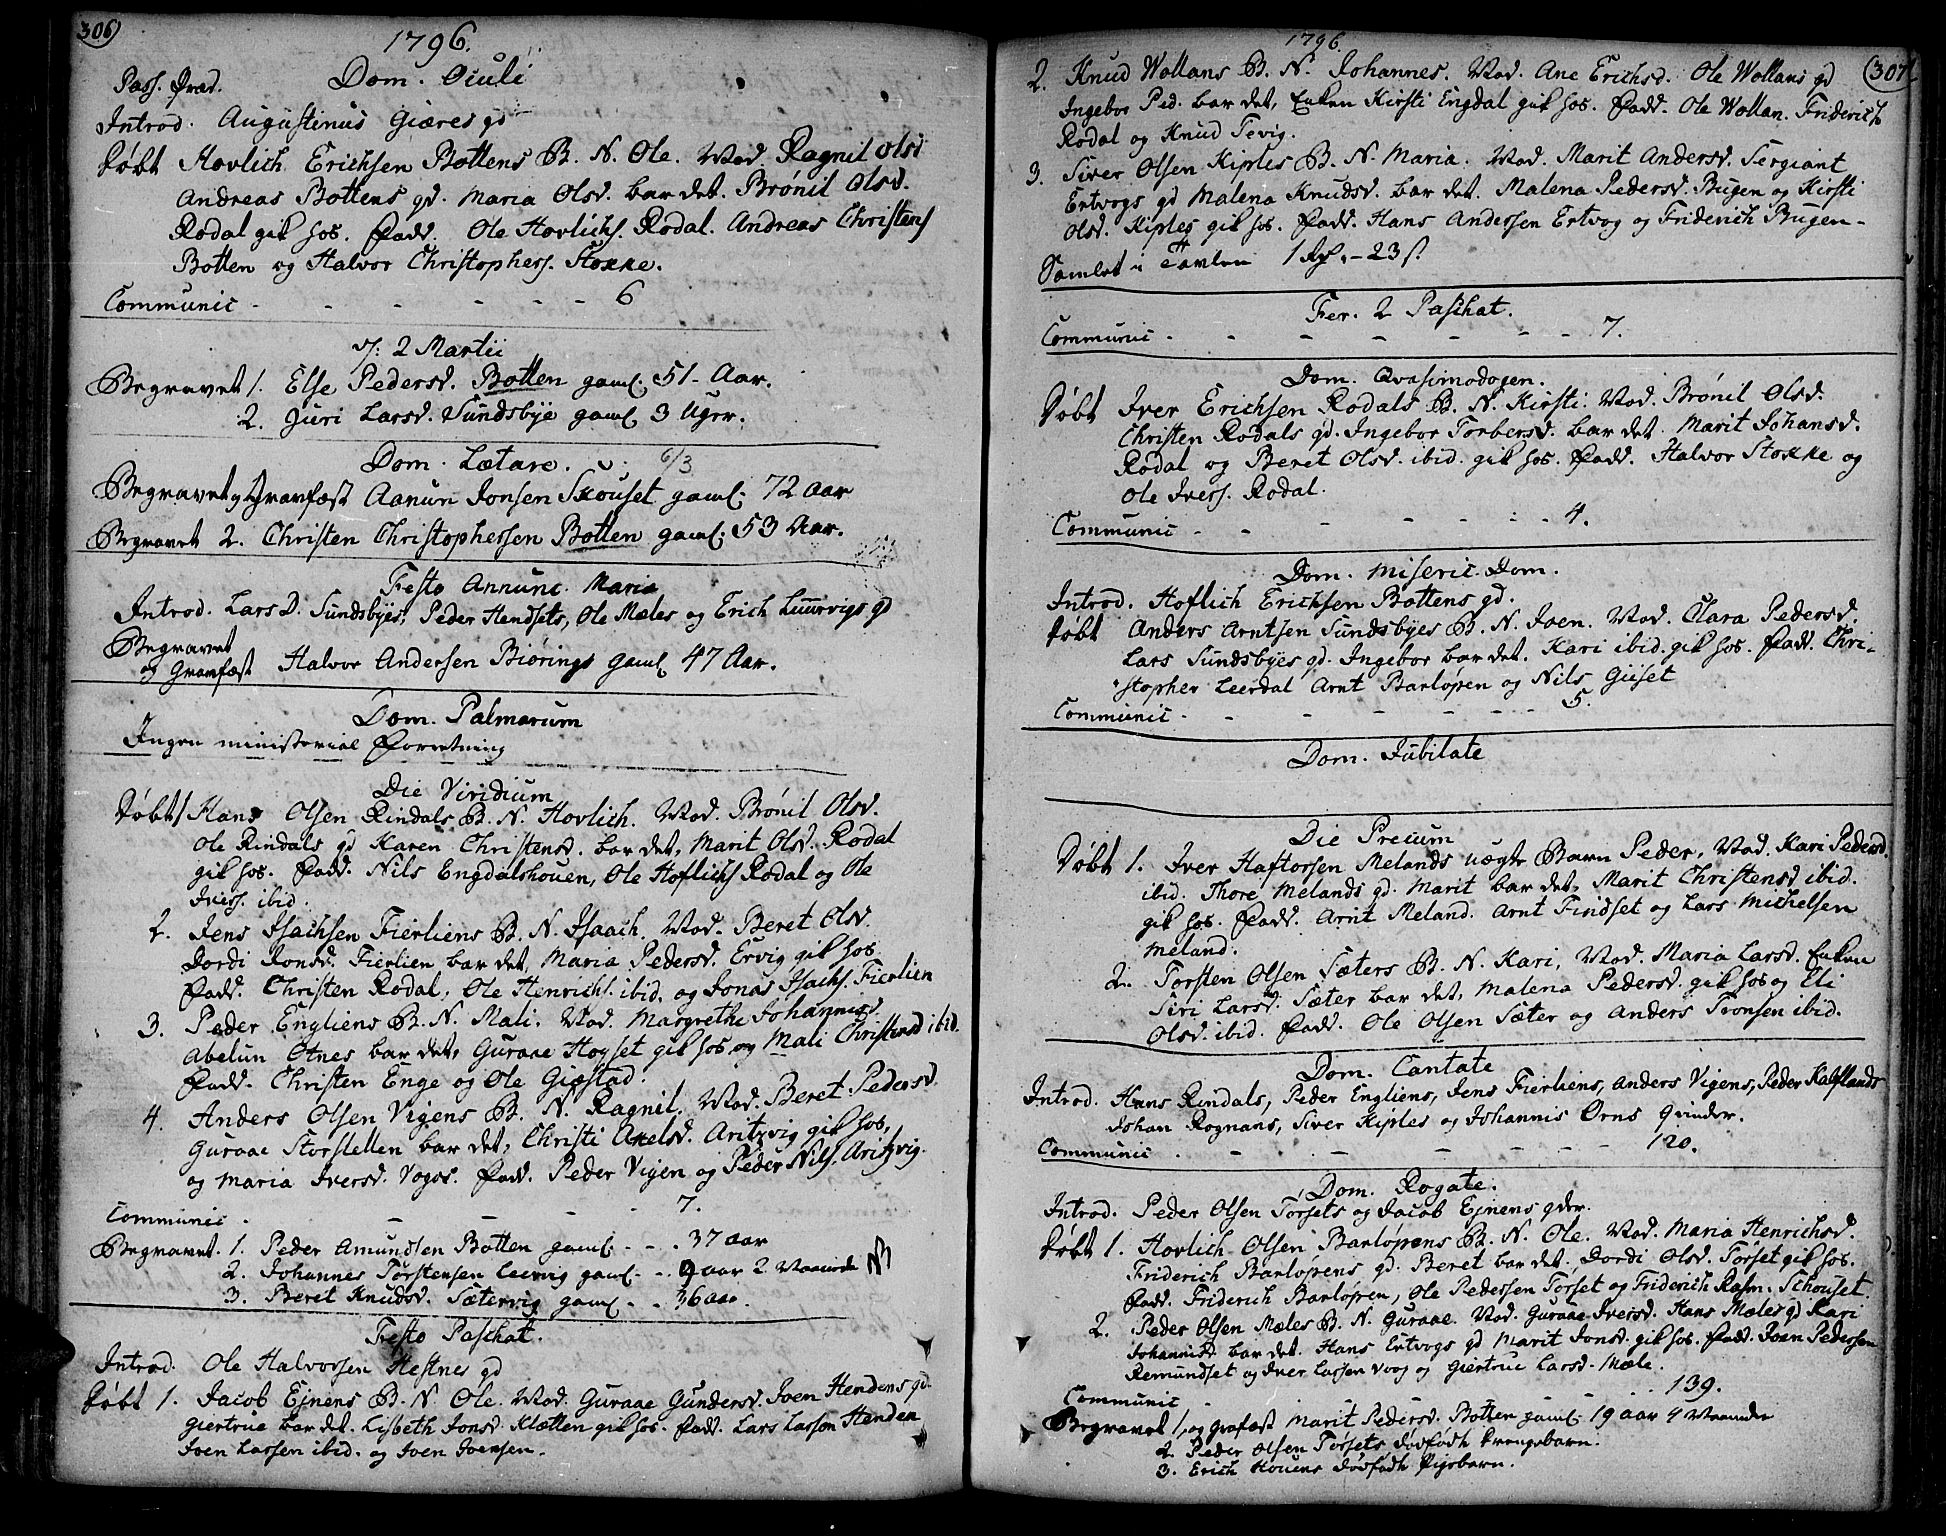 306
1796.
Pass. Præd.
Dom. Oculi
Introd. Augustinus Giæres gd
Døbt Hovlich Erichsen Bottens B. N. Ole. Mod. Ragnil Olsd
Andreas Bottens gd. Maria Olsd. bar det. Brønil Olsd.
Rodal gik hos. Fadd. Ole Hovlichs. Rodal. Andreas Christens
Botten og Halvor Christophers. Stokke.
Communic - - - - - - 6
d: 2 Martii
Begravet 1. Else Pedersd. Botten gaml. 51 Aar.
2. Juri Larsd. Sundsbye gaml 3 Uger.
Dom. Lætare. 6/3
Begravet og Gravfæst Aanun Jonsen Skouset gaml. 72 Aar
Begravet 2. Christen Christophersen Botten gaml. 53 Aar.
Festo Annunc. Maria
Introd. Lars D. Sundsbyes, Peder Hendsets, Ole Mæles og Erich Luurvigs gd
Begravet
og Gravfæst Halvor Andersen Biørings gaml 47 Aar.
Dom. Palmarum
Ingen ministerial Forretning
Die Viridium
Døbt 1 Hans Olsen Rindals B. N. Hovlich. Mod. Brønil Olsd.
Ole Rindals gd Karen Christensd. bar det, Marit Olsd. Rodal
gik hos. Fadd. Nils Engdalshouen, Ole Hoflichs Rodal og Ole
Iverss. ibid.
2. Jens Isachsen Fierliens B. N. Isaach. Mod. Beret Olsd
Dordi Jonsd. Fierlien bar det, Maria Pedersd. Ervig gik hos
Fadd. Christen Rodal, Ole Henrichs. ibid. og Jonas Isachs. Fierlien
3. Peder Engliens B. N. Mali. Mod. Margrethe Johannisd.
Abelun Otnes bar det, Guraae Hogset gik hos og Mali Christensd ibid.
Fadd. Christen Enge og Ole Giøstad.
4. Anders Olsen Vigens B. N. Ragnil. Mod. Beret Pedersd.
Guraae Storslellen bar det, Christi Axelsd. Aritzvig gik hos,
og Maria Iversd. Vogos. Fadd. Peder Vigen og Peder Nils. Aritzvig.
Communic - - - - 7.
Begravet. 1. Peder Amundsen Botten gaml - - 37 aar
2. Johannes Torstensen Leervig gaml - - 9 aar 2 Maaneder NB
3. Beret Knudsd. Sætervig gaml - - 36 aar.
Festo Paschat.
Introd. Ole Halvorsen Hestnes gd
Døbt 1. Jacob Ejnens B. N. Ole. Mod. Guraae Gundersd. Joen Hendens gd.
Giertrue bar det. Lisbeth Jonsd. Kletten gik hos. Fadd. Lars Larssen Henden
Joen Larsen ibid. og Joen Joensen.
1796.
307
2. Knud Wollans B. N. Johannes. Mod. Ane Erichsd. Ole Wollans gd
Ingebor Ped. bar det, Enken Kirsti Engdal gik hos. Fadd. Ole Wollan. Friderich
Rodal og Knud Tevig.
3. Siver Olsen Kiples B. N. Maria. Mod. Marit Andersd. Sergiant
Ertvogs gd Malena Knudsd. bar det. Malena Pedersd. Bugen og Kirsti
Olsd. Kiples gik hos. Fadd. Hans Andersen Ertvog og Friderich Bugen -
Samlet i Tavlen 1 Rd. - 23 s.
Fer. 2 Paschat.
Communic - - - - - - 7.
Dom. Qvasimodogen.
Døbt Iver Erichsen Rodals B. N. Kirsti. Mod. Brønil Olsd.
Christen Rodals gd. Ingebor Torbersd. bar det. Marit Johansd.
Rodal og Beret Olsd. ibid. gik hos. Fadd. Halvor Stokke og
Ole Iverss. Rodal.
Communic - - - - - - 4.
Dom. Miseric. Dom.
Introd. Hoflich Erichsen Bottens gd.
Døbt Anders Arntsen Sundsbyes B. N. Joen. Mod. Clara Pedersd.
Lars Sundsbyes gd. Ingebor bar det. Kari ibid. gik hos. Fadd. Chri-
stopher Leerdal Arnt Barlopen og Nils Giiset
Communic - - - - - - 5.
Dom. Jubilate
Die Precum
Døbt 1. Iver Haftorsen Melands uægte Barn Peder, Mod. Kari Pedersd.
ibid. Thore Melands gd. Marit bar det, Marit Christensd ibid.
gik hos. Fadd. Arnt Meland. Arnt Findset og Lars Michelsen
Meland.
2. Torsten Olsen Sæters B. N. Kari, Mod. Maria Larsd. Enken
Siri Larsd. Sæter bar det, Malena Pedersd. gik hos og Eli
Olsd. ibid. Fadd. Ole Olsen Sæter og Anders Tronsen ibid.
Dom. Cantate
Introd. Hans Rindals, Peder Engliens, Jens Fierliens, Anders Vigens, Peder Kalflands
Johan Rognans, Siver Kiples og Johannis Orns Qvinder.
Communic - - - - - - 120.
Dom. Rogate.
Introd. Peder Olsen Torsets og Jacob Ejnens gder.
Døbt 1. Hovlich Olsen Barlopens B. N. Ole. Mod. Maria Henrichsd.
Friderich Barlopens gd. Beret bar det, Dordi Olsd. Torset gik hos.
Fadd. Friderich Barlopen, Ole Pedersen Torset og Friderich Rasm. Schouset.
2. Peder Olsen Mæles B. N. Guraae. Mod. Guraae Iversd. Hans Mæles gd Kari
Johannisd bar det. Hans Ertvogs gd Marit Jonsd. gik hos. Fadd. Joen Pedersen
Remundset og Iver Larsen Voog og Giertrue Larsd. Mæle.
Communic - - - - 139.
Begravet 1, og grafæst Marit Pedersd. Botten gaml 19 aar 4 Maaneder
2. Peder Olsen Torsets dødfødt Drengebarn.
3. Erich Houens dødfødt Pigebarn.